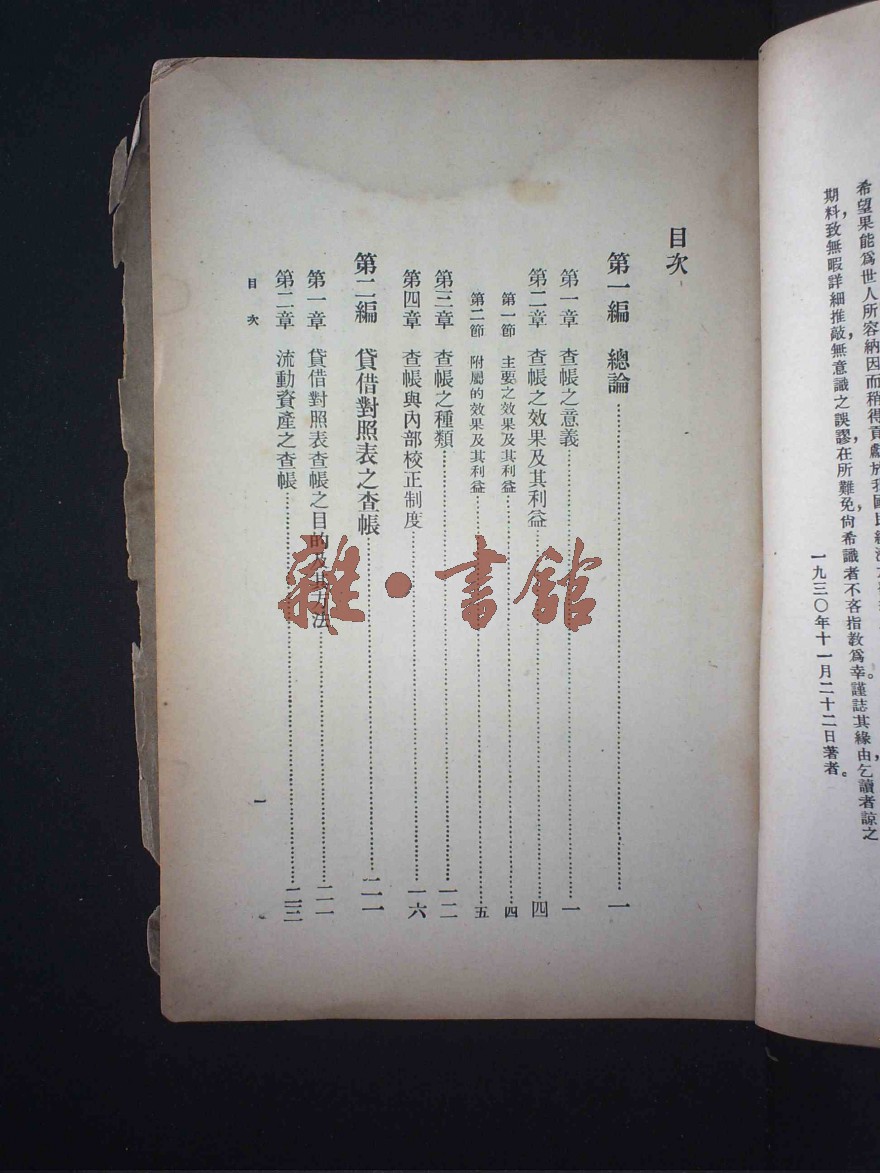 希望果能爲世人所容納因而稍得貢獻於我國民經濟
期料，致無暇詳細推敲，無意識之誤謬，在所難免，尙希識者不吝指教爲幸。謹誌其緣由，乞讀者諒之
一九三〇年十一月二十二日著者。
目次
第一編　總論……一
第一章　查帳之意義……一
第二章　查帳之效果及其利益……四
第一節　主要之效果及其利益……四
第二節　附屬的效果及其利益……五
第三章　查帳之種類……一二
第四章　查帳與內部校正制度……一六
第二編　貸借對照表之查帳……二一
第一章　貸借對照表查帳之目的及其方法……二一
第二章　流動資產之查帳……二三
目次
一
雜·書館